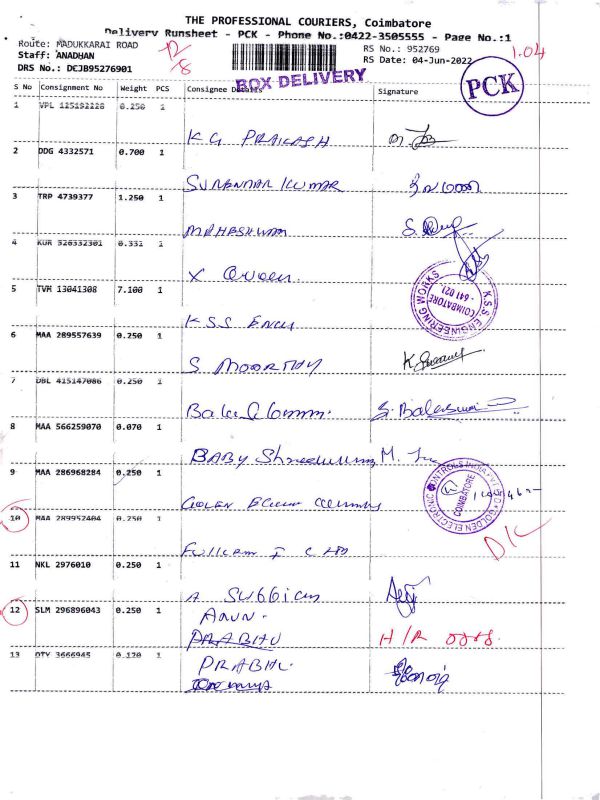 THE PROFESSIONAL COURIERS, Coimbatore
Delivery Runsheet - PCK - Phone No.:0422-3505555 - Page No.:1
Route: MADUKKARAI ROAD
RS No.: 952769
1.04
Staff: ANADHAN
RS Date: 04-Jun-2022
DRS No.: DCJB95276901
12/8
BOX DELIVERY
PCK
S No Consignment No Weight PCS Consignee Details Signature
1 VPL 125192228 0.250 1
KG PRAKASH
2 DDG 4332571 0.700 1
KUMAR
3 TRP 4739377 1.250 1
MAHESHWARI
4 KUR 526332301 0.331 1
X Queen
5 TVM 13041308 7.100 1
KSS ENGG
K.S.S. ENGINEERING WORKS
COIMBATORE
- 641 021
6 MAA 289557639 0.250 1
S MOORTHY
7 DBL 415147086 0.250 1
Bala G Comm.
8 MAA 566259070 0.070 1
BABY
9 MAA 286968284 0.250 1
GOLDEN ELECTRONIC CONTROLS INDIA PVT LTD
COIMBATORE
10 MAA 289952404 0.250 1
D/L
11 NKL 2976010 0.250 1
A SUBBIAN
12 SLM 296896043 0.250 1
ARUN.
PRABHU H/R
13 OTY 3666945 0.120 1
PRABHU